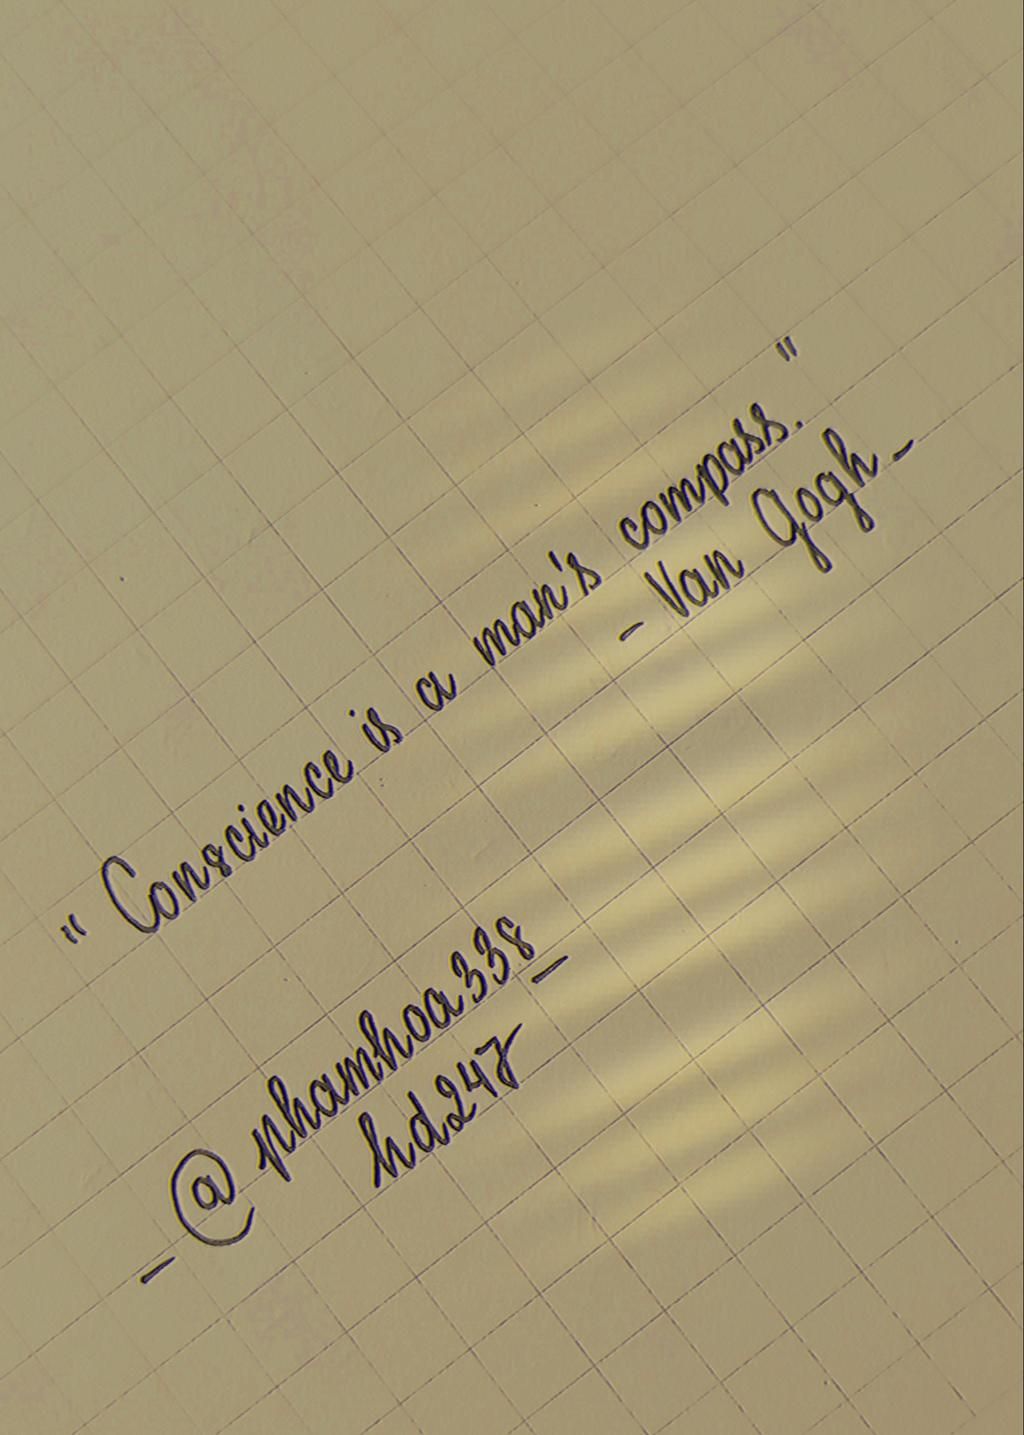 " Conscience is a man's compass. "
- Van Gogh -
- @phamhoa338 -
hd247